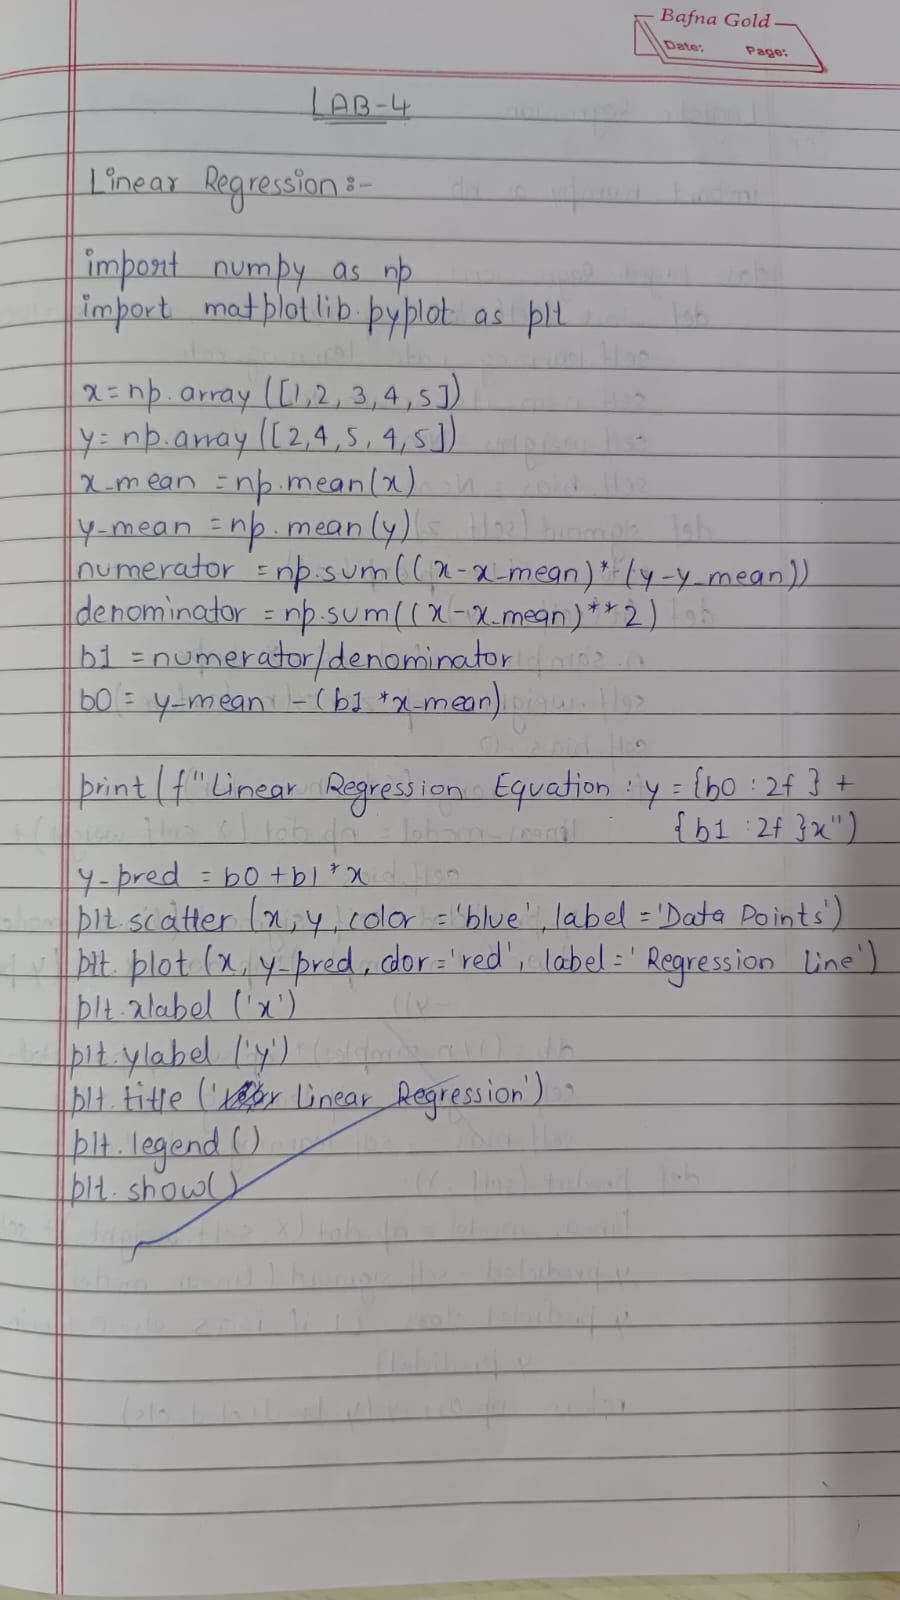 Bafna Gold
Date: Page:
LAB-4
Linear Regression:-
import numpy as np
import matplotlib.pyplot as plt
x = np.array([1,2,3,4,5])
y = np.array([2,4,5,4,5])
x_mean = np.mean(x)
y_mean = np.mean(y)
numerator = np.sum((x-x_mean)*(y-y_mean))
denominator = np.sum((x-x_mean)**2)
b1 = numerator/denominator
b0 = y_mean - (b1*x_mean)
print(f"Linear Regression Equation : y = {b0:2f} +
{b1:2f}x")
y_pred = b0+b1*x
plt.scatter(x,y,color='blue',label='Data Points')
plt.plot(x,y_pred,color='red',label='Regression line')
plt.xlabel('x')
plt.ylabel('y')
plt.title('Linear Regression')
plt.legend()
plt.show()